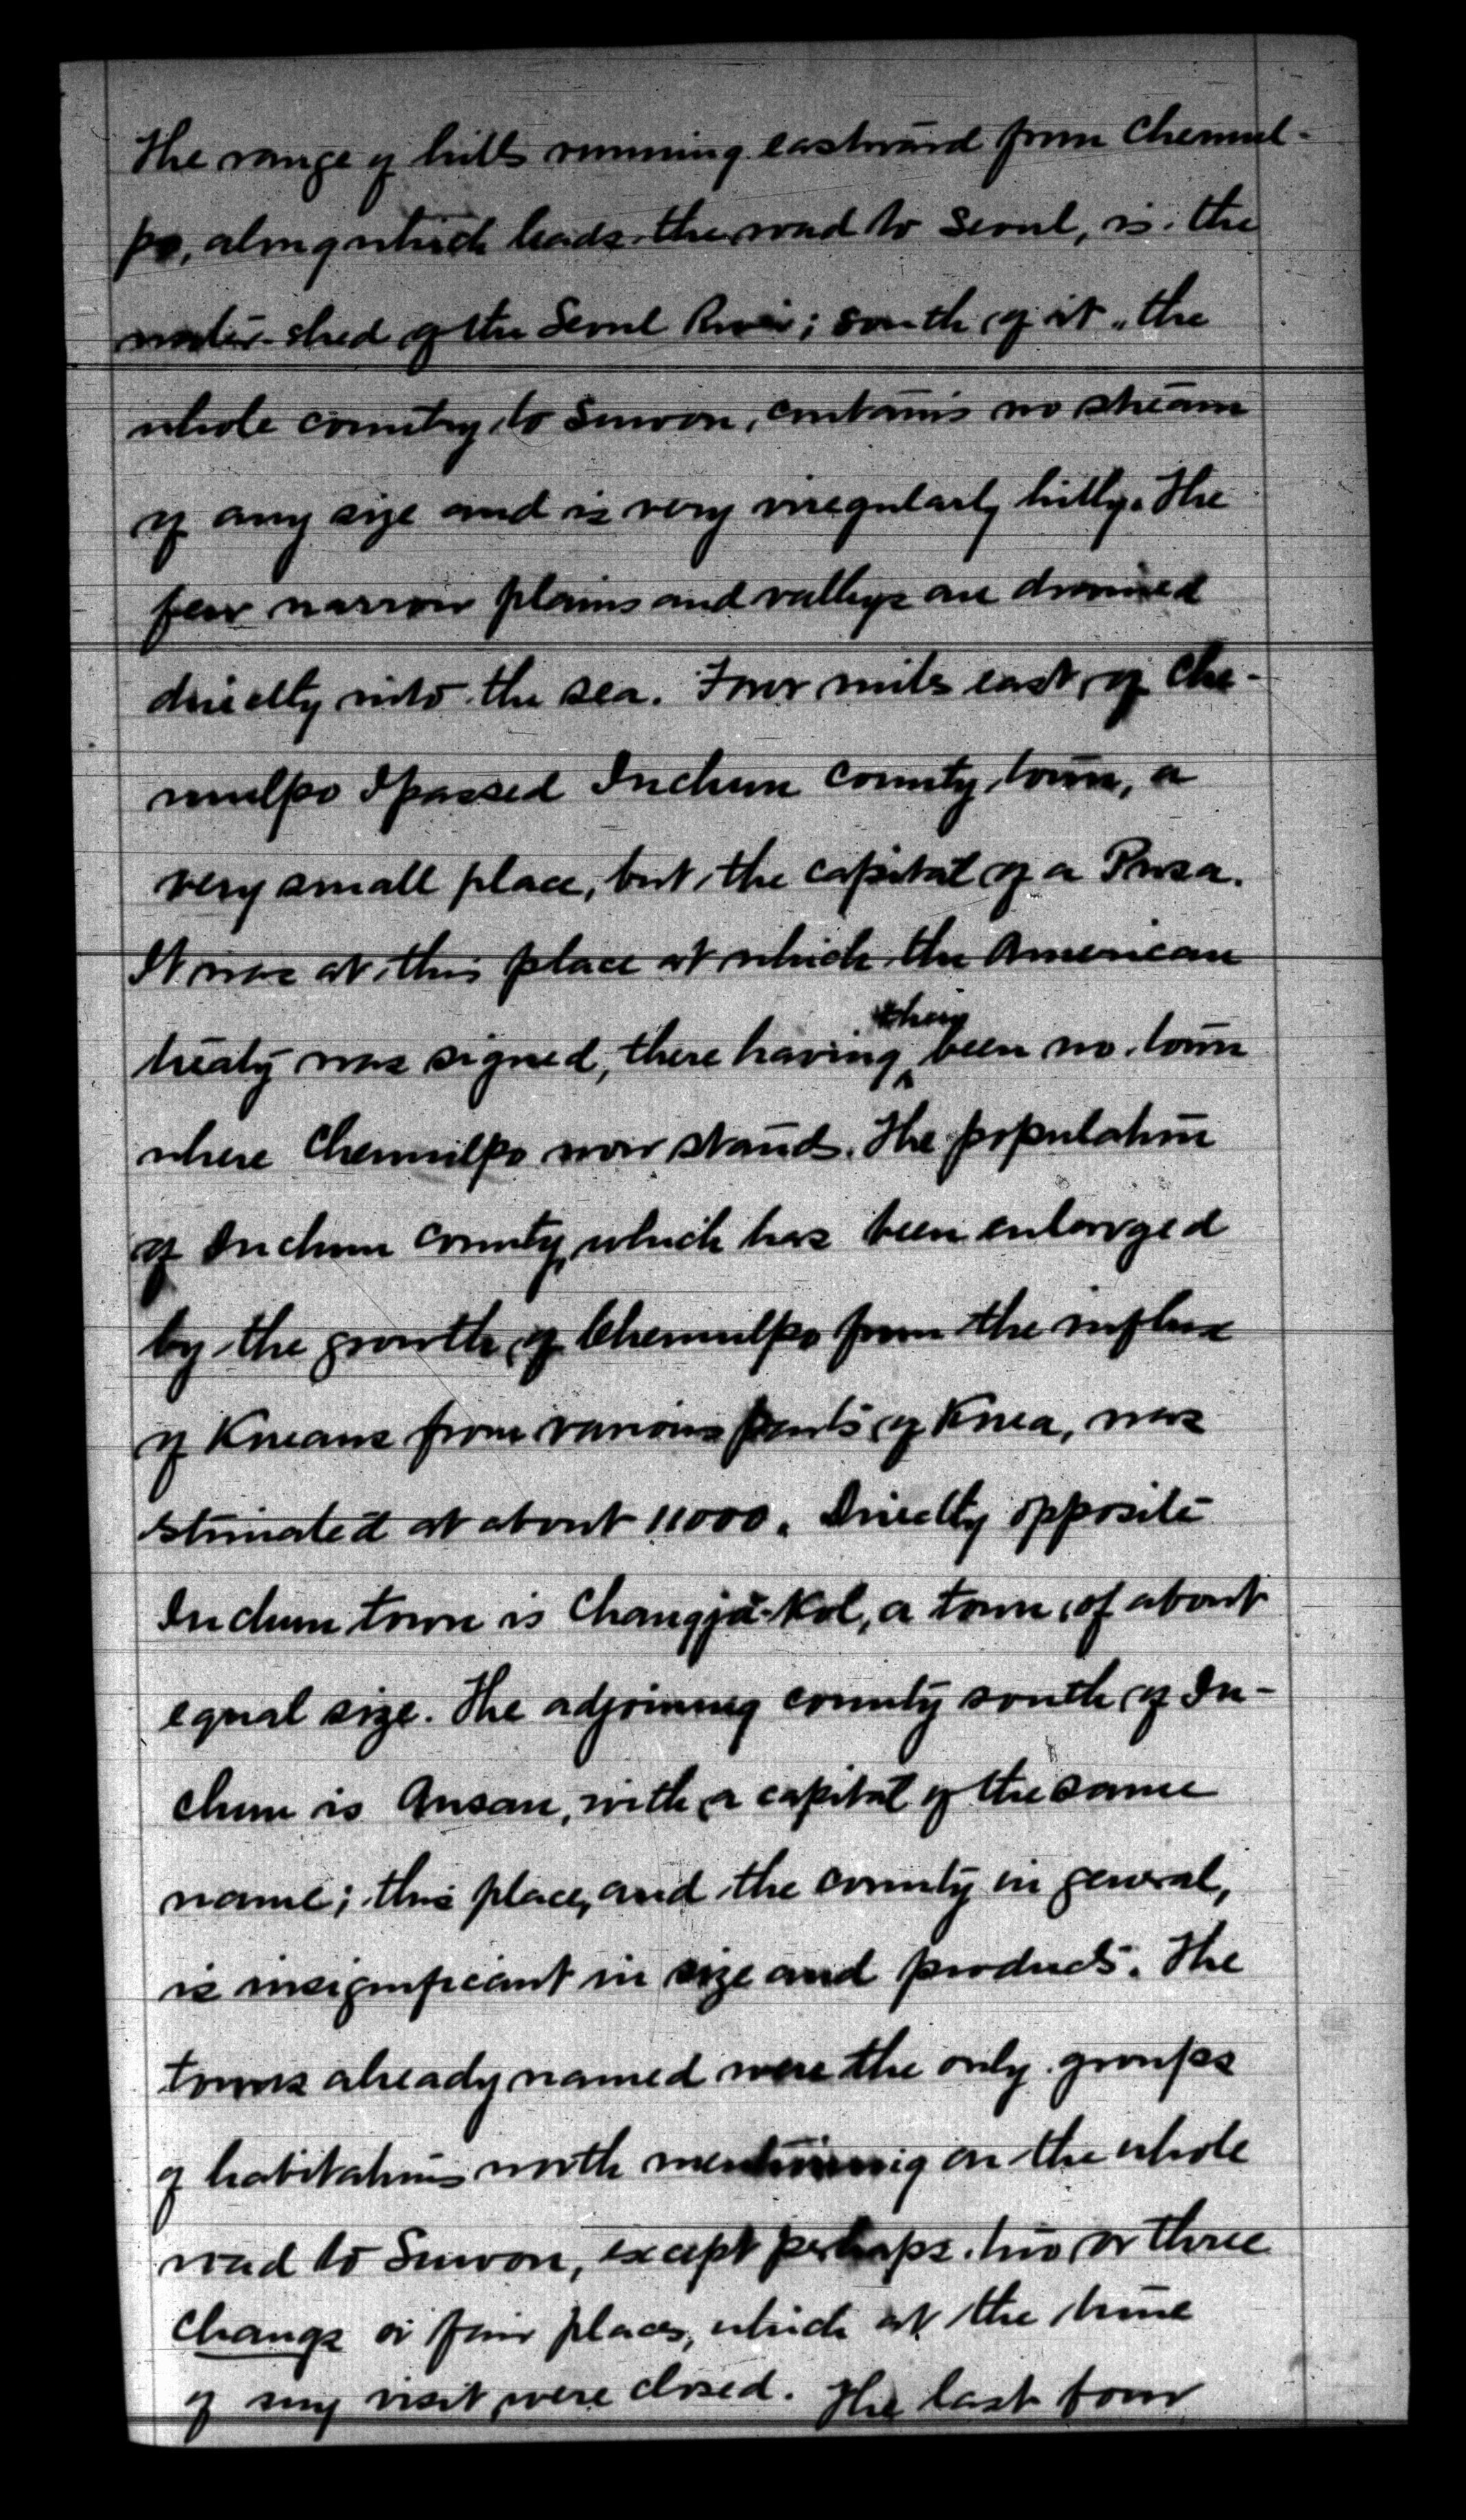 The range of hills running eastward from Chemul-
po, along which leads the road to Seoul, is the
water-shed of the Seoul River; south of it, the
whole country to Suwon, contains no stream
of any size and is very irregularly hilly. The
few narrow plains and valleys are drained
directly into the sea. Four miles east of Che-
mulpo I passed Inchun county town, a
very small place, but the capital of a Pusa.
It was at this place at which the American
then
treaty was signed, there having ^ been no town
where Chemulpo now stands. The population
of Inchun county, which has been enlarged
by the growth of Chemulpo from the influx
of Koreans from various parts of Korea, was
estimated at about 11000. Directly opposite
Inchun town is Changjä-Kol, a town of about
equal size. The adjoining county south of In-
chun is Ansan, with a capital of the same
name; this place, and the county in general,
is insignificant in size and products. The
towns already named were the only groups
of habitations worth mentioning on the whole
road to Suwon, except perhaps two or three
changs or fair places, which at the time
of my visit were closed. The last four